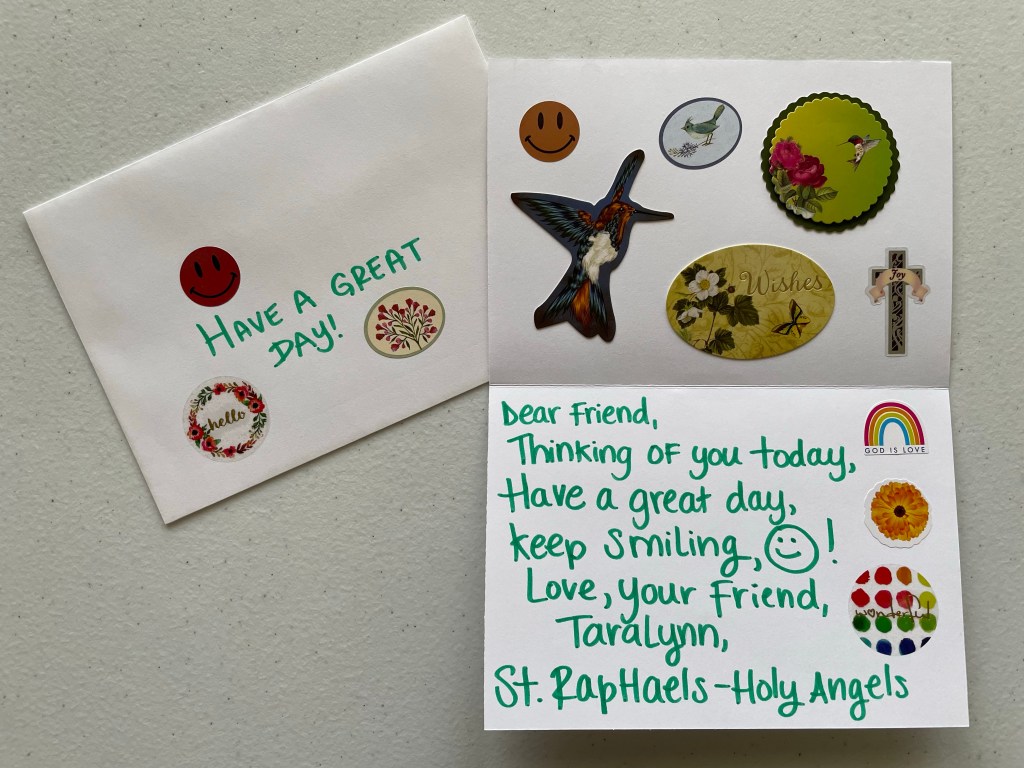 HAVE A GREAT
DAY!
hello
Wishes
Joy
Dear Friend,
Thinking of you today,
Have a great day,
keep smiling, !
Love, your Friend,
Taralynn,
St. RapHaels-Holy Angels
GOD IS LOVE
wonderful